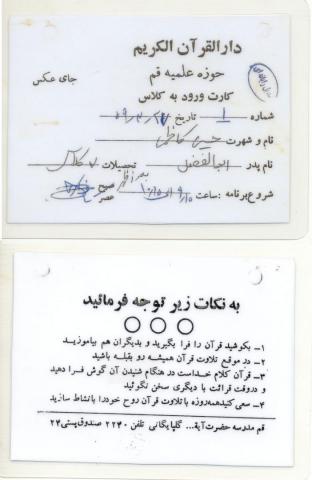 دارالقرآن الکریم
حوزه علمیه قم
جای عکس
کارت ورود به کلاس
شماره ۱ تاریخ
نام و شهرت حسین کاظمی
نام پدر ابوالفضل تحصیلات ۷ کلاس
شروع برنامه : ساعت صبح عصر
به نکات زیر توجه فرمائید
۱- بکوشید قرآن را فرا بگیرید و بدیگران هم بیاموزید
۲- در موقع تلاوت قرآن همیشه رو بقبله باشید
۳- قرآن کلام خداست در هنگام شنیدن آن گوش فرا دهید
و دروقت قرائت با دیگری سخن نگوئید
۴- سعی کنید همه روزه با تلاوت قرآن روح خود را با نشاط سازید
قم مدرسه حضرت آیة... گلپایگانی تلفن ۲۲۴۰ صندوق پستی ۲۴